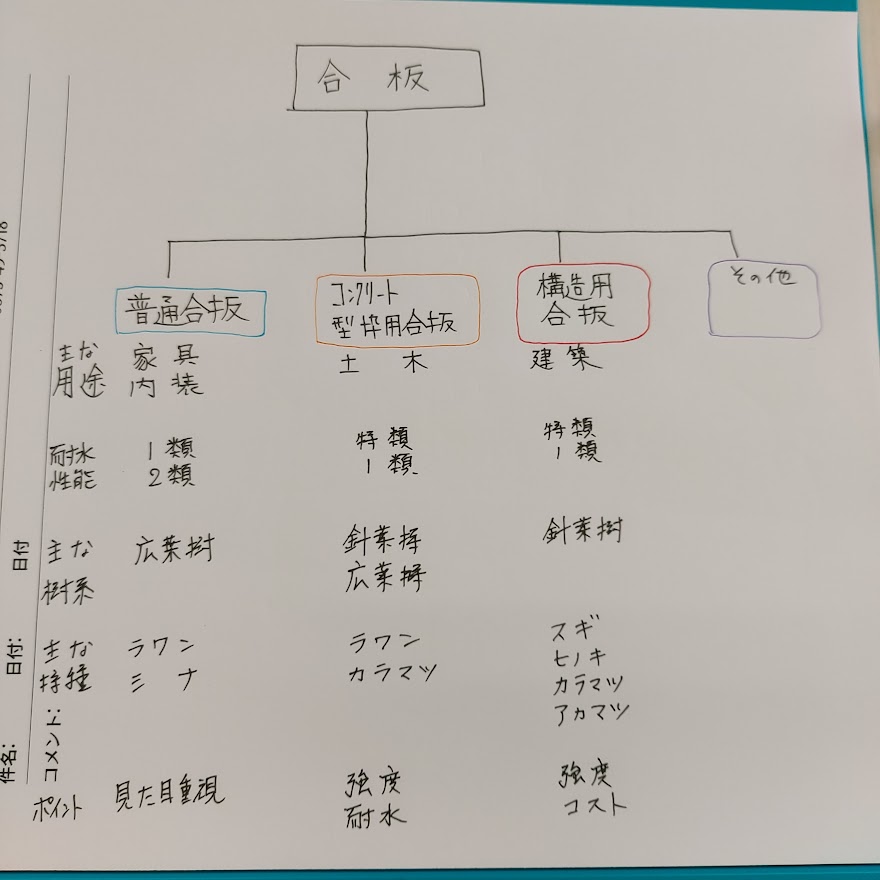 合板
普通合板
コンクリート
型枠用合板
構造用
合板
その他
主な
用途
家具
内装
土木
建築
耐水
性能
1類
2類
特類
1類
特類
1類
主な
樹系
広葉樹
針葉樹
広葉樹
針葉樹
主な
ラワン
ミナ
ラワン
カラマツ
スギ
ヒノキ
カラマツ
アカマツ
ポイント
見た目重視
強度
耐水
強度
コスト
日付
日付:
件名:
コメント: